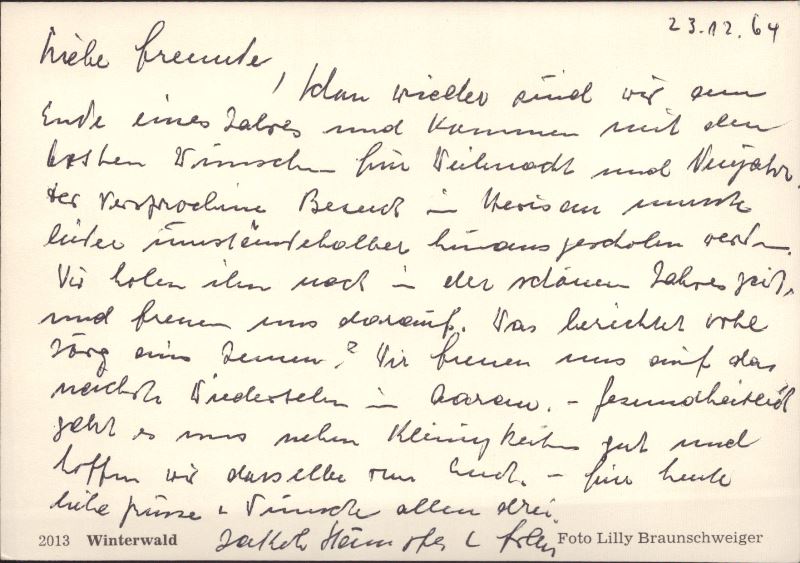 23.12.64
Liebe Freunde,
schon wieder sind wir am
Ende eines Jahres und kommen mit den
besten Wünschen für Weihnacht und Neujahr.
Der versprochene Besuch in Herisau musste
leider umständehalber hinausgeschoben werden.
Wir holen ihn nach in der schönen Jahreszeit,
und freuen uns darauf. Was berichtet wohl
Jörg aus ? Wir freuen uns auf das
nächste Wiedersehen in Aarau. – Gesundheitlich
geht es uns neben Kleinigkeiten gut und
hoffen wir dasselbe von Euch. – Für heute
liebe Grüsse & Wünsche allen drei.
Jakob &
2013 Winterwald
Foto Lilly Braunschweiger